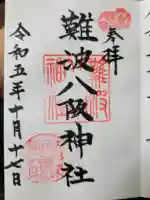 奉拝
難波八阪神社
令和五年十月十七日